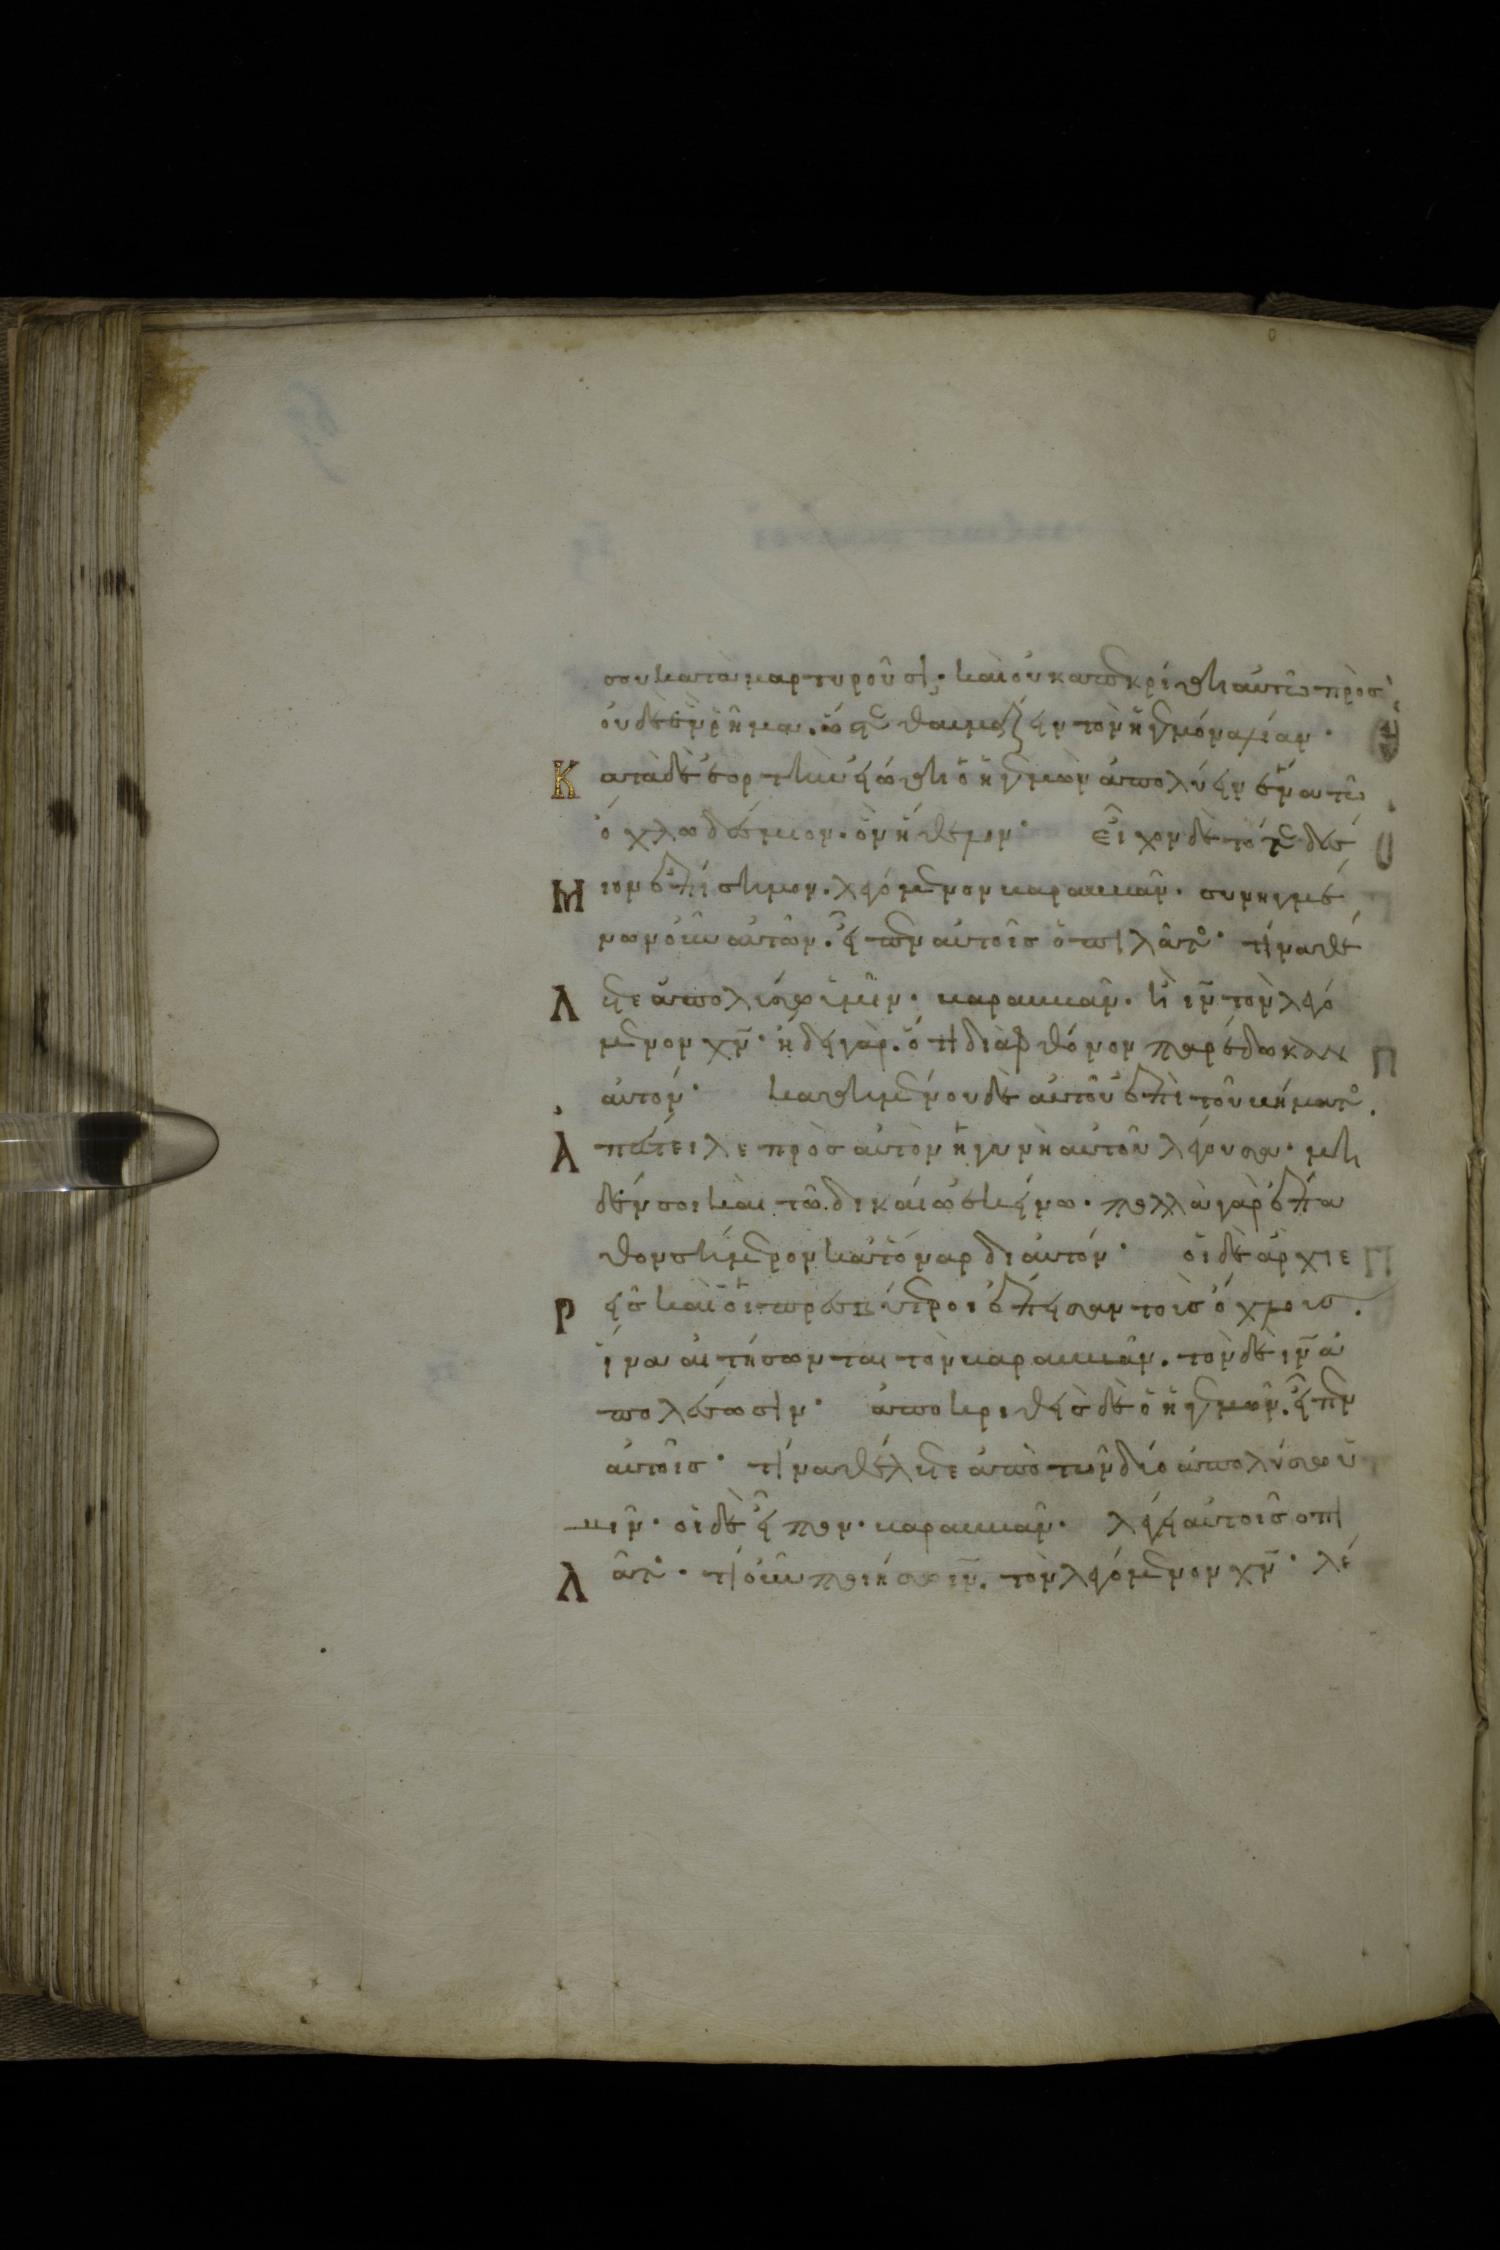 σου καταμαρτυροῦσι· καὶ οὐκ ἀπεκρίθη αὐτῶ πρὸς
οὐδὲ ἓν ῥῆμα. ὥστε θαυμάζειν τὸν ἡγεμόνα λίαν·
Κατὰ δὲ ἑορτὴν εἰώθη ὁ ἡγεμὼν ἀπολύειν ἕνα τῶ
ὄχλω δέσμιον. ὃν ἤθελον· εἶχον δὲ τότε δέσ
Μιον ἐπίσημον. λεγόμενον βαραββᾶν. συνηγμέ
νων οὖν αὐτῶν. εἶπεν αὐτοῖς ὁ πιλᾶτος· τίνα θέ
Λετε ἀπολύσω ὑμῖν· βαραββᾶν. ἢ ιν̅ τὸν λεγό
μενον χν̅· ἤδει γὰρ. ὅτι διὰ φθόνον παρέδωκαν
αὐτόν· καθημένου δὲ αὐτοῦ ἐπὶ τοῦ βήματος.
Ἀπέστειλε πρὸς αὐτὸν ἡ γυνὴ αὐτοῦ λέγουσα· μη
δέν σοι καὶ τῶ δικαίω ἐκείνω. πολλὰ γὰρ ἔπα
θον σήμερον κατ ὄναρ δι αὐτόν· οἱ δὲ ἀρχιε
Ρεῖς καὶ οἱ πρεσβύτεροι ἔπεισαν τοὺς ὄχλους.
ἵνα αἰτήσωνται τὸν βαραββᾶν. τὸν δὲ ιν̅ ἀ
πολέσωσιν· ἀποκριθεὶς δὲ ὁ ἡγεμὼν. εἶπεν
αὐτοῖς· τίνα θέλετε ἀπὸ τῶν δύο ἀπολύσω ὑ
μῖν. οἱ δὲ εἶπον. βαραββᾶν. λέγει αὐτοῖς ὁ πι
Λᾶτος· τί οὖν ποιήσω ιν̅. τὸν λεγόμενον χν̅· λέ